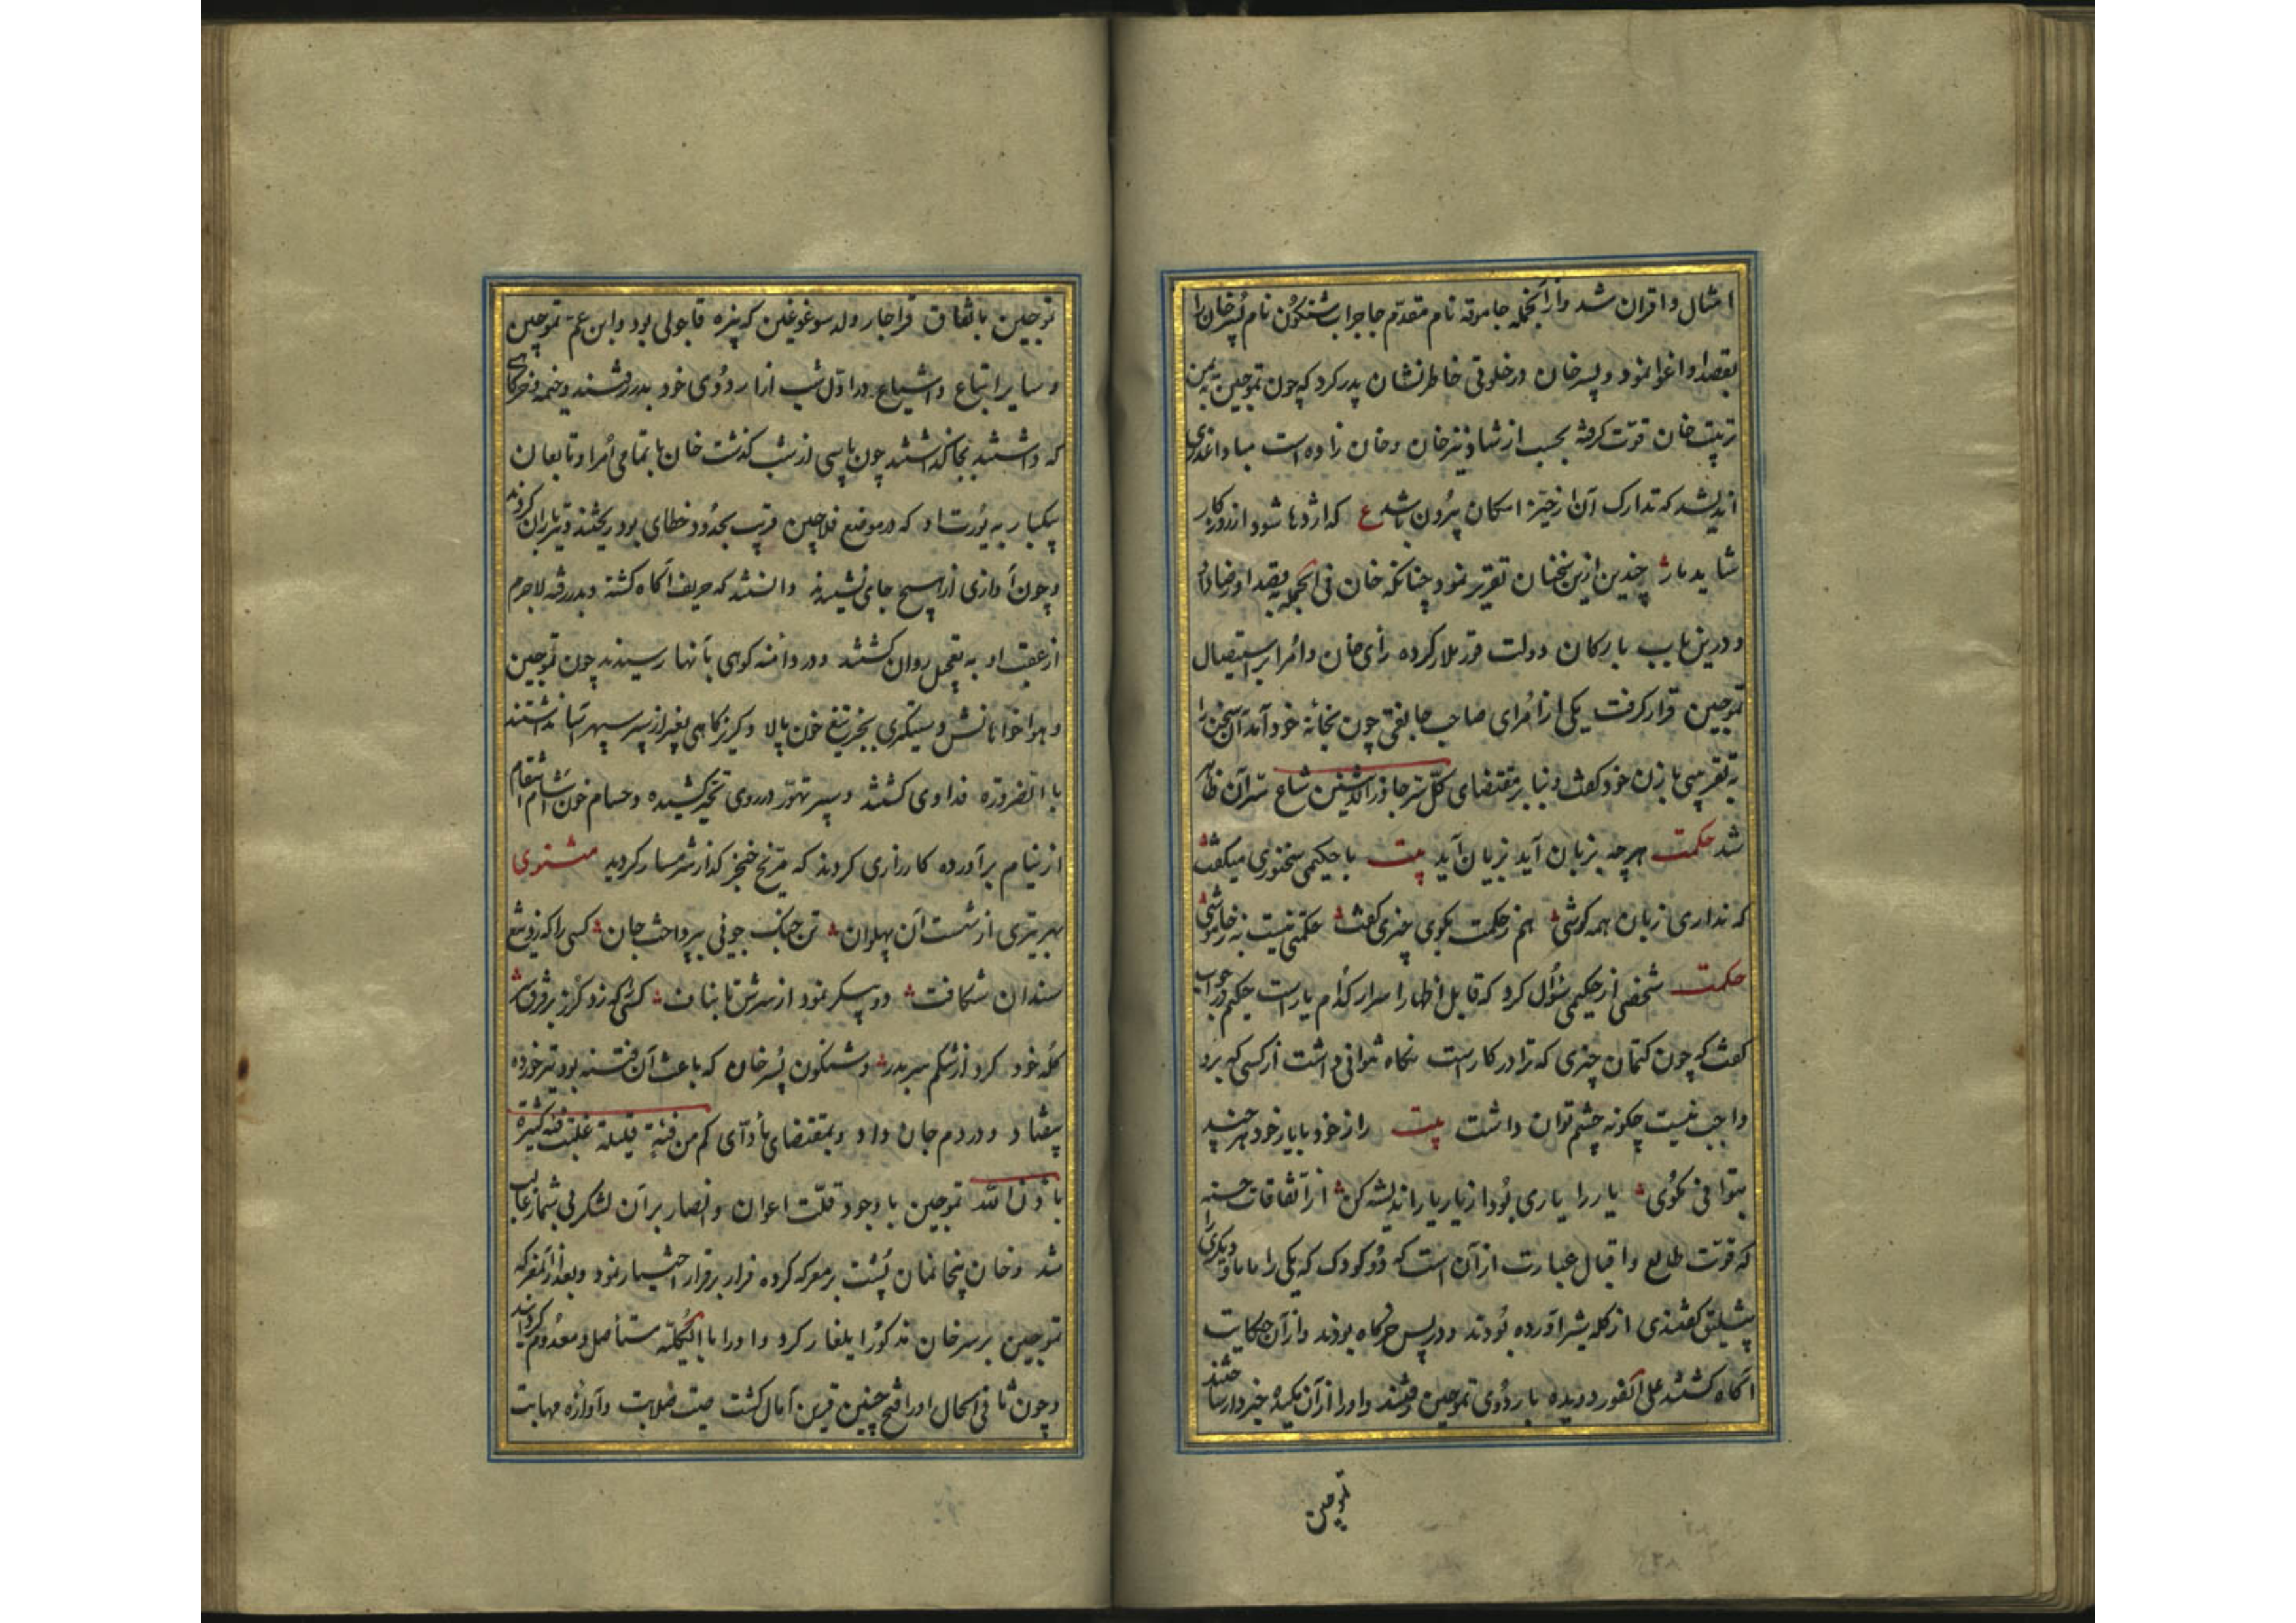 امثال و اقران شد و از آنجمله جاموقه نام مقدّم جاجرات شنکون نام پسر خان را
بقصد او اغوا نمود و پسر خان در خلوتی خاطرنشان پدر کرد که چون تموجین به یمن
تربیت خان قوّت گرفته بحسب از شما و نیز خان و خان زاده است مبادا غدری
اندیشد که تدارک آن از حیّز امکان بیرون باشد ع که اژدها شود ار روزگار
شاید مار چندین ازین سخنان تقریر نمود چنانکه خان فی الجمله بقصد او رضا داد
و درین باب با ارکان دولت قورملار کرده رأی خان و امرا بر استیصال
تموجین قرار گرفت یکی از امرای صاحب جانقی چون بخانه خود آمد آن سخن را
به تقریبی با زن خود گفت و بنا بر مقتضای کلّ سرّ جاوز الاثنین شاع سرّ آن ظاهر
شد حکمت هر چه بزبان آید بزیان آید بیت با حکیمی سخنوری میگفت
که نداری زبان همه گوشی هم ز حکمت بگوی چیزی گفت حکمتی نیست به ز خاموشی
حکمت شخصی از حکیمی سؤال کرد که قابل اظهار اسرار کدام یار است حکیم در جواب
گفت که چون کتمان چیزی که ترا در کار است نگاه نتوانی داشت از کسی که برو
واجب نیست چگونه چشم توان داشت بیت راز خود با یار خود هر چند
بتوانی مگوی یار را یاری بود از یار یار اندیشه کن از اتّفاقات حسنه
که قوّت طالع و اقبال عبارت از آن است که دو کودک که یکی را ماما و دیگری را
پشیلیق گفتندی از گله شیر آورده بودند و در پس خرگاه بودند و از آن حکایت
آگاه گشتند علی الفور دویده باردوی تموجین رفتند و او را از آن مکیده خبردار ساختند
تموجین
تموجین باتفاق قراجار ولد سوغوغلین که نیره قاجولی بود و ابن عم تموچین
و سایر اتباع و اشیاع در اوّل شب از اردوی خود بدر رفتند و خیمه و خرگاهی
که داشتند بجا گذاشتند چون پاسی از شب گذشت خان با تمامی امرا و تابعان
یکبار به یورت او که در موضع فلاچین قریب بحدود خطای بود ریختند و تیرباران کردند
و چون آوازی از هیچ جای نشنیدند دانستند که حریف آگاه گشته و بدر رفته لاجرم
از عقب او به تعجیل روان گشتند و در دامنه کوهی بآنها رسیدند چون تموجین
و هواخواهانش دستگیری بجز تیغ خون پالا و گریزگاهی بغیر از سپر سپهر آسا نداشتند
با الضروره فداوی گشتند و سپر تهوّر در روی تحیر کشیده و حسام خون آشام انتقام
از نیام برآورده کارزاری کردند که مرّیخ خنجر گذار شرمسار گردید مثنوی
بهر تیری از شست آن پهلوان تن جنگ جوئی بپرداخت جان کسی را که زد تیغ
سندان شکافت دو پیکر نمود از سرش تا بناف کسی که زد گرز بر فرق سر
کله خود کرد از شکم سر بدر و شنکون پسر خان که باعث آن فتنه بود تیر خورده
بیفتاد و در دم جان داد و بمقتضای مأدّای کم من فئة قلیلة غلبت فئة کثیرة
باذن الله تموجین با وجود قلّت اعوان و انصار بر آن لشکر بی شمار غالب
شد و خان پنجانمان پشت بر معرکه کرده فرار بر قرار اختیار نمود و بعد از آن معرکه
تموجین بر سر خان مذکور ایلغار کرد و او را با الکلیّه مستأصل و معدوم گردانید
و چون تا فی الحال او را فتح چنین قرین آمال گشت صیت صلابت و آوازه مهابت